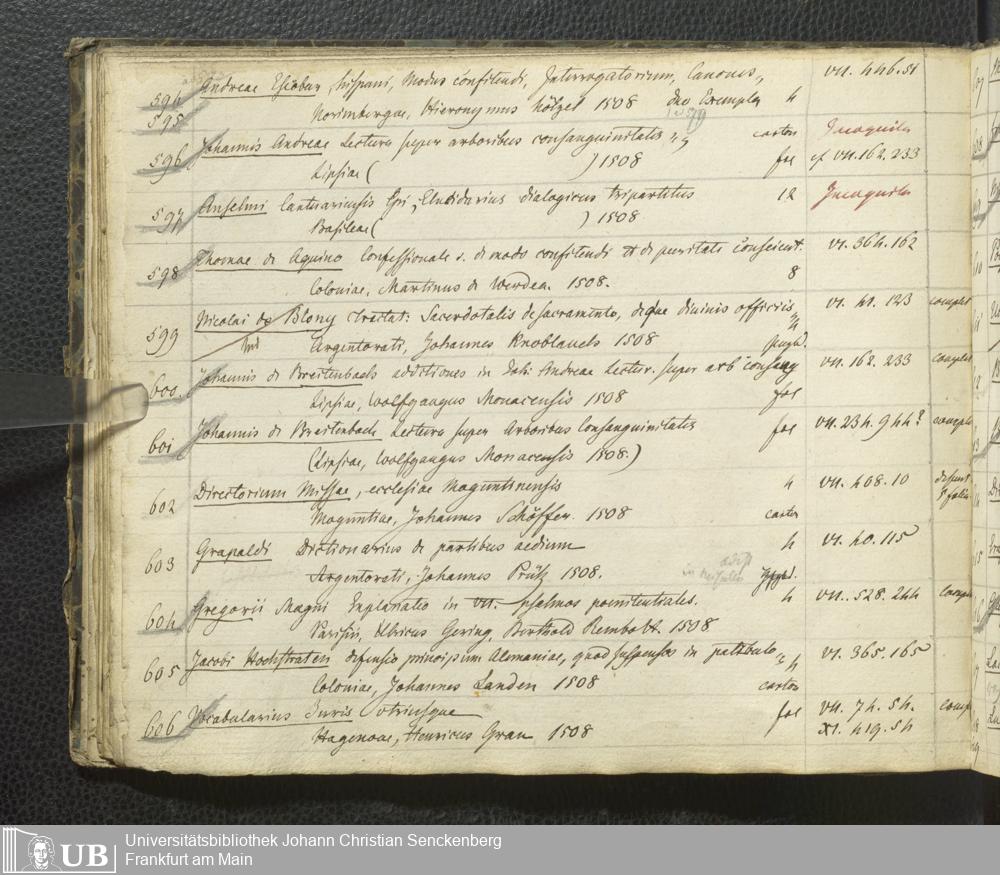 594 Andreae Escobar, hispani, Modus confitendi, Interrogatorium, Canones, VII. 446. 51
595 Norimbergae, Hieronymus Hölzel 1508 duo Exempla 4
596 Johannis Andreae Lectura super arboribus consanguinitatis carton Incognita
Lipsiae ( ) 1508 fol cf VII. 162. 233
597 Anselmi Cantuariensis Epi, Elucidarius dialogicus tripartitus 12 Incognita
Basileae ( ) 1508
598 Thomae de Aquino Confessionale s. de modo confitendi et de puritate conscient. VI. 364. 162
Coloniae, Martinus de Werdea. 1508. 8
599 Nicolai de Blony Tractat: Sacerdotalis de sacramento, deque divinis officiis VI. 41. 123 complet
Argentorati, Johannes Knoblauch 1508
600. Johannis de Breitenbach additiones in Joh: Andreae Lectur. super arb consang VII. 162. 233 complet
Lipsiae, Wolfgangus Monacensis 1508 fol
601 Johannis de Breitenbach Lectura super Arboribus Consanguinitatis fol VII. 234. 944? complet
(Lipsiae, Wolfgangus Monacensis 1508.)
602 Directorium Missae, ecclesiae Moguntinensis 4 VII. 408. 10 desunt
Moguntiae, Johannes Schöffer. 1508 carton folia
603 Grapaldi Dictionarius de partibus aedium 4 VI. 40. 115
Argentorati, Johannes Prüß 1508.
604 Gregorii Magni Explanatio in VII. psalmos poenitentiales. 4 VII. 528. 244 comple
Parisiis, Ulricus Gering, Berthold Rembolt. 1508
605 Jacobi Hochstraten defensio principum Alemaniae, quod suspensos in patibulo 4 VI. 365. 165
Coloniae, Johannes Landen 1508 carton
606 Vocabularius Juris utriusque fol VII. 74. 54. comp
Hagenoae, Henricus Gran 1508 XI. 419. 54
UB
Universitätsbibliothek Johann Christian Senckenberg
Frankfurt am Main